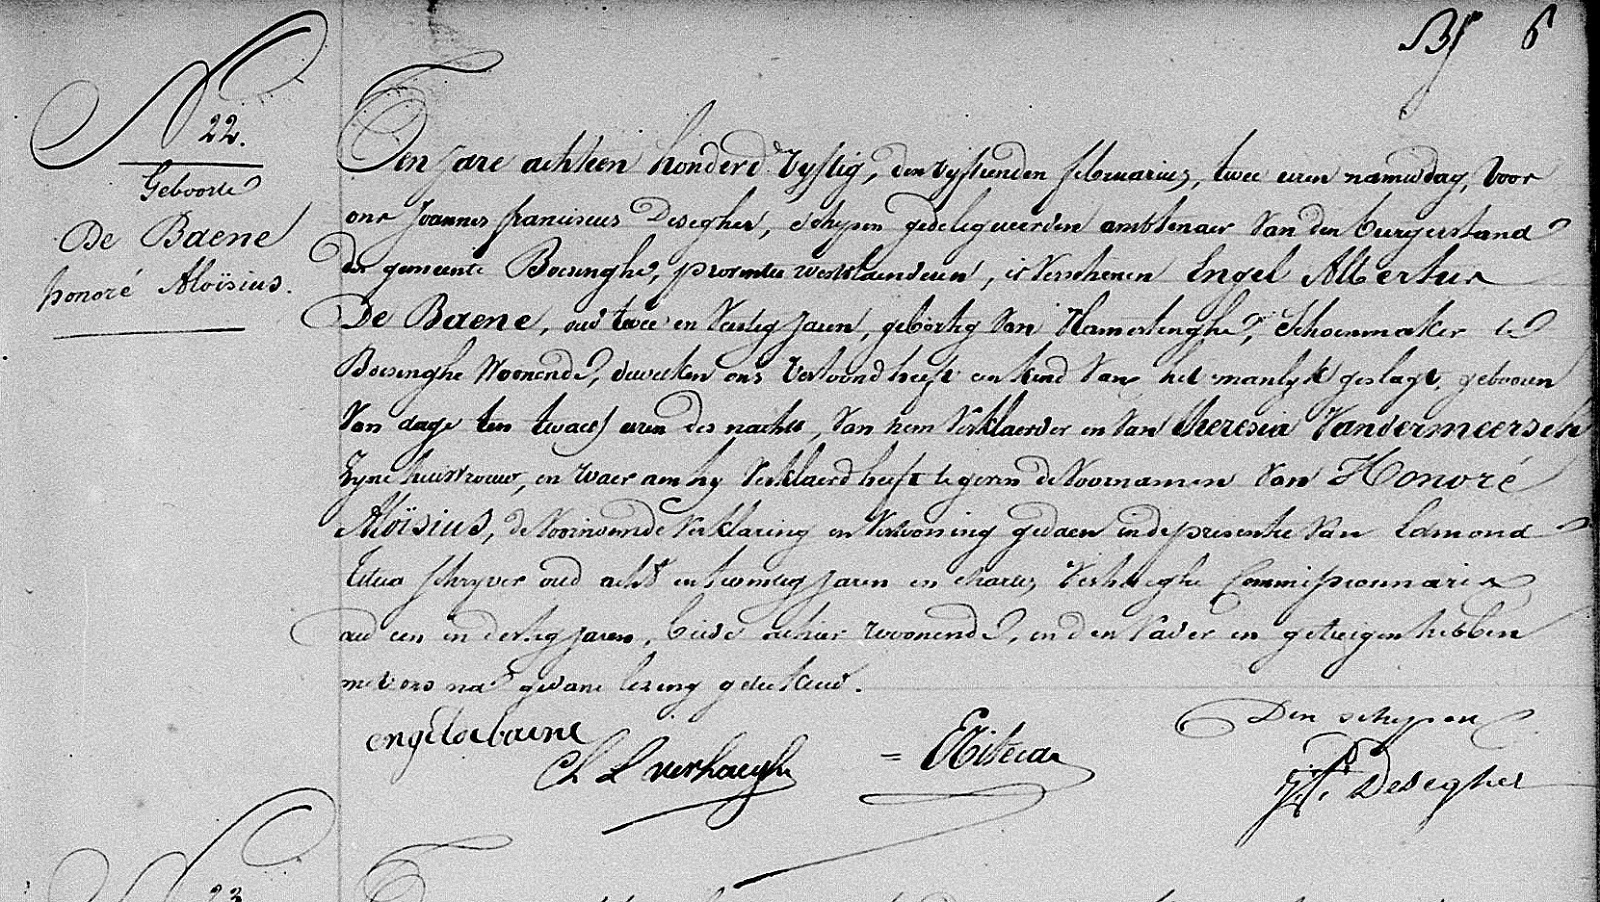 6
N
22.
Geboorte
De Baene
honoré Aloïsius.
Ten jare achteen honderd vyftig, den vyftienden februarius, twee uren namiddag, voor
ons Joannes franciscus Desegher, schepen gedelegueerden ambtenaer van den burgerstand
der gemeente Boesinghe, provintie westvlaenderen, is verschenen Engel Albertus
De Baene, oud twee en veertig jaren, gebortig van Vlamertinghe, Schoenmaker te
Boesinghe woonende, dewelken ons vertoond heeft een kind van het manlyk geslagt, gebooren
van dage ten twaelf uren des nachts, van hem verklaerder en van theresia Vandermeersch
zyne huisvrouw, en waer aen hy verklaerd heeft te geven de voornamen van Honoré
Aloïsius, de voornoemde verklaring en vertooning gedaen in de presentie van Edmond
schryver oud acht en twintig jaren en charles Verhaeghe Commissionnaris
oud een en dertig jaren, beide alhier woonende, en den vader en getuigen hebben
met ons na gedane lezing geteekend.
engel debaene
Ch L verhaeghe
=
Den schepen
J f. Desegher
23